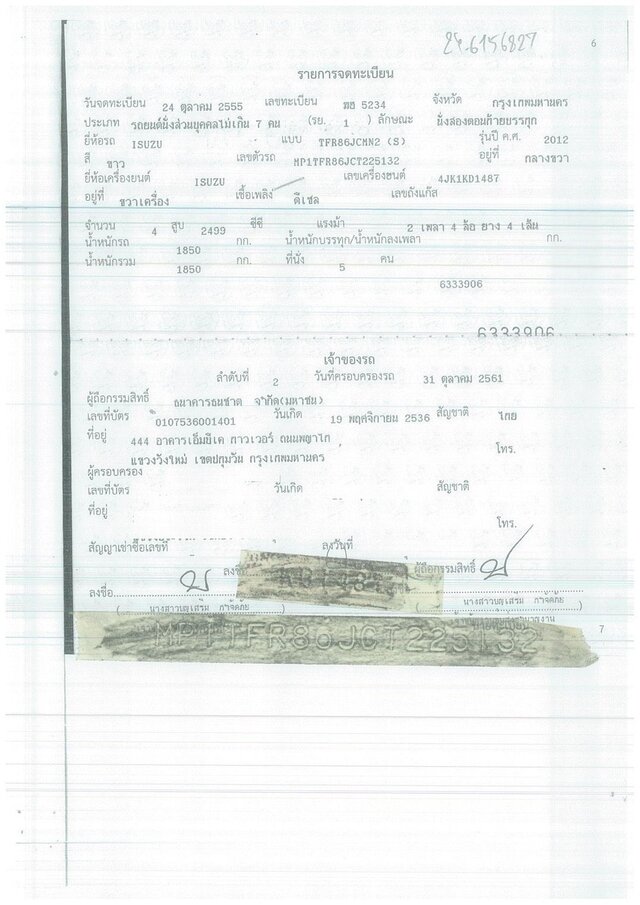 6
รายการจดทะเบียน
วันจดทะเบียน 24 ตุลาคม 2555 เลขทะเบียน 5234 จังหวัด กรุงเทพมหานคร
ประเภท รถยนต์นั่งส่วนบุคคลไม่เกิน 7 คน (รย. 1 ) ลักษณะ นั่งสองตอนท้ายบรรทุก
ยี่ห้อรถ ISUZU แบบ TFR86JCMN2 (S) รุ่นปี ค.ศ. 2012
สี ขาว เลขตัวรถ MP1TFR86JCT225132 อยู่ที่ กลางขวา
ยี่ห้อเครื่องยนต์ ISUZU เลขเครื่องยนต์ 4JK1KD1487
อยู่ที่ ขวาเครื่อง เชื้อเพลิง ดีเซล เลขถังแก๊ส
จำนวน 4 สูบ 2499 ซีซี แรงม้า 2 เพลา 4 ล้อ ยาง 4 เส้น
น้ำหนักรถ 1850 กก. น้ำหนักบรรทุก/น้ำหนักลงเพลา กก.
น้ำหนักรวม 1850 กก. ที่นั่ง 5 คน
6333906
6333906
เจ้าของรถ
ลำดับที่ 2 วันที่ครอบครองรถ 31 ตุลาคม 2561
ผู้ถือกรรมสิทธิ์ ธนาคารธนชาต จำกัด(มหาชน)
เลขที่บัตร 0107536001401 วันเกิด 19 พฤศจิกายน 2536 สัญชาติ ไทย
ที่อยู่ 444 อาคารเอ็มบีเค ทาวเวอร์ ถนนพญาไท โทร.
แขวงวังใหม่ เขตปทุมวัน กรุงเทพมหานคร
ผู้ครอบครอง
เลขที่บัตร วันเกิด สัญชาติ
ที่อยู่
โทร.
สัญญาเช่าซื้อเลขที่ ลงวันที่
ผู้ถือกรรมสิทธิ์
ลงชื่อ
MP1TFR86JCT225132
7